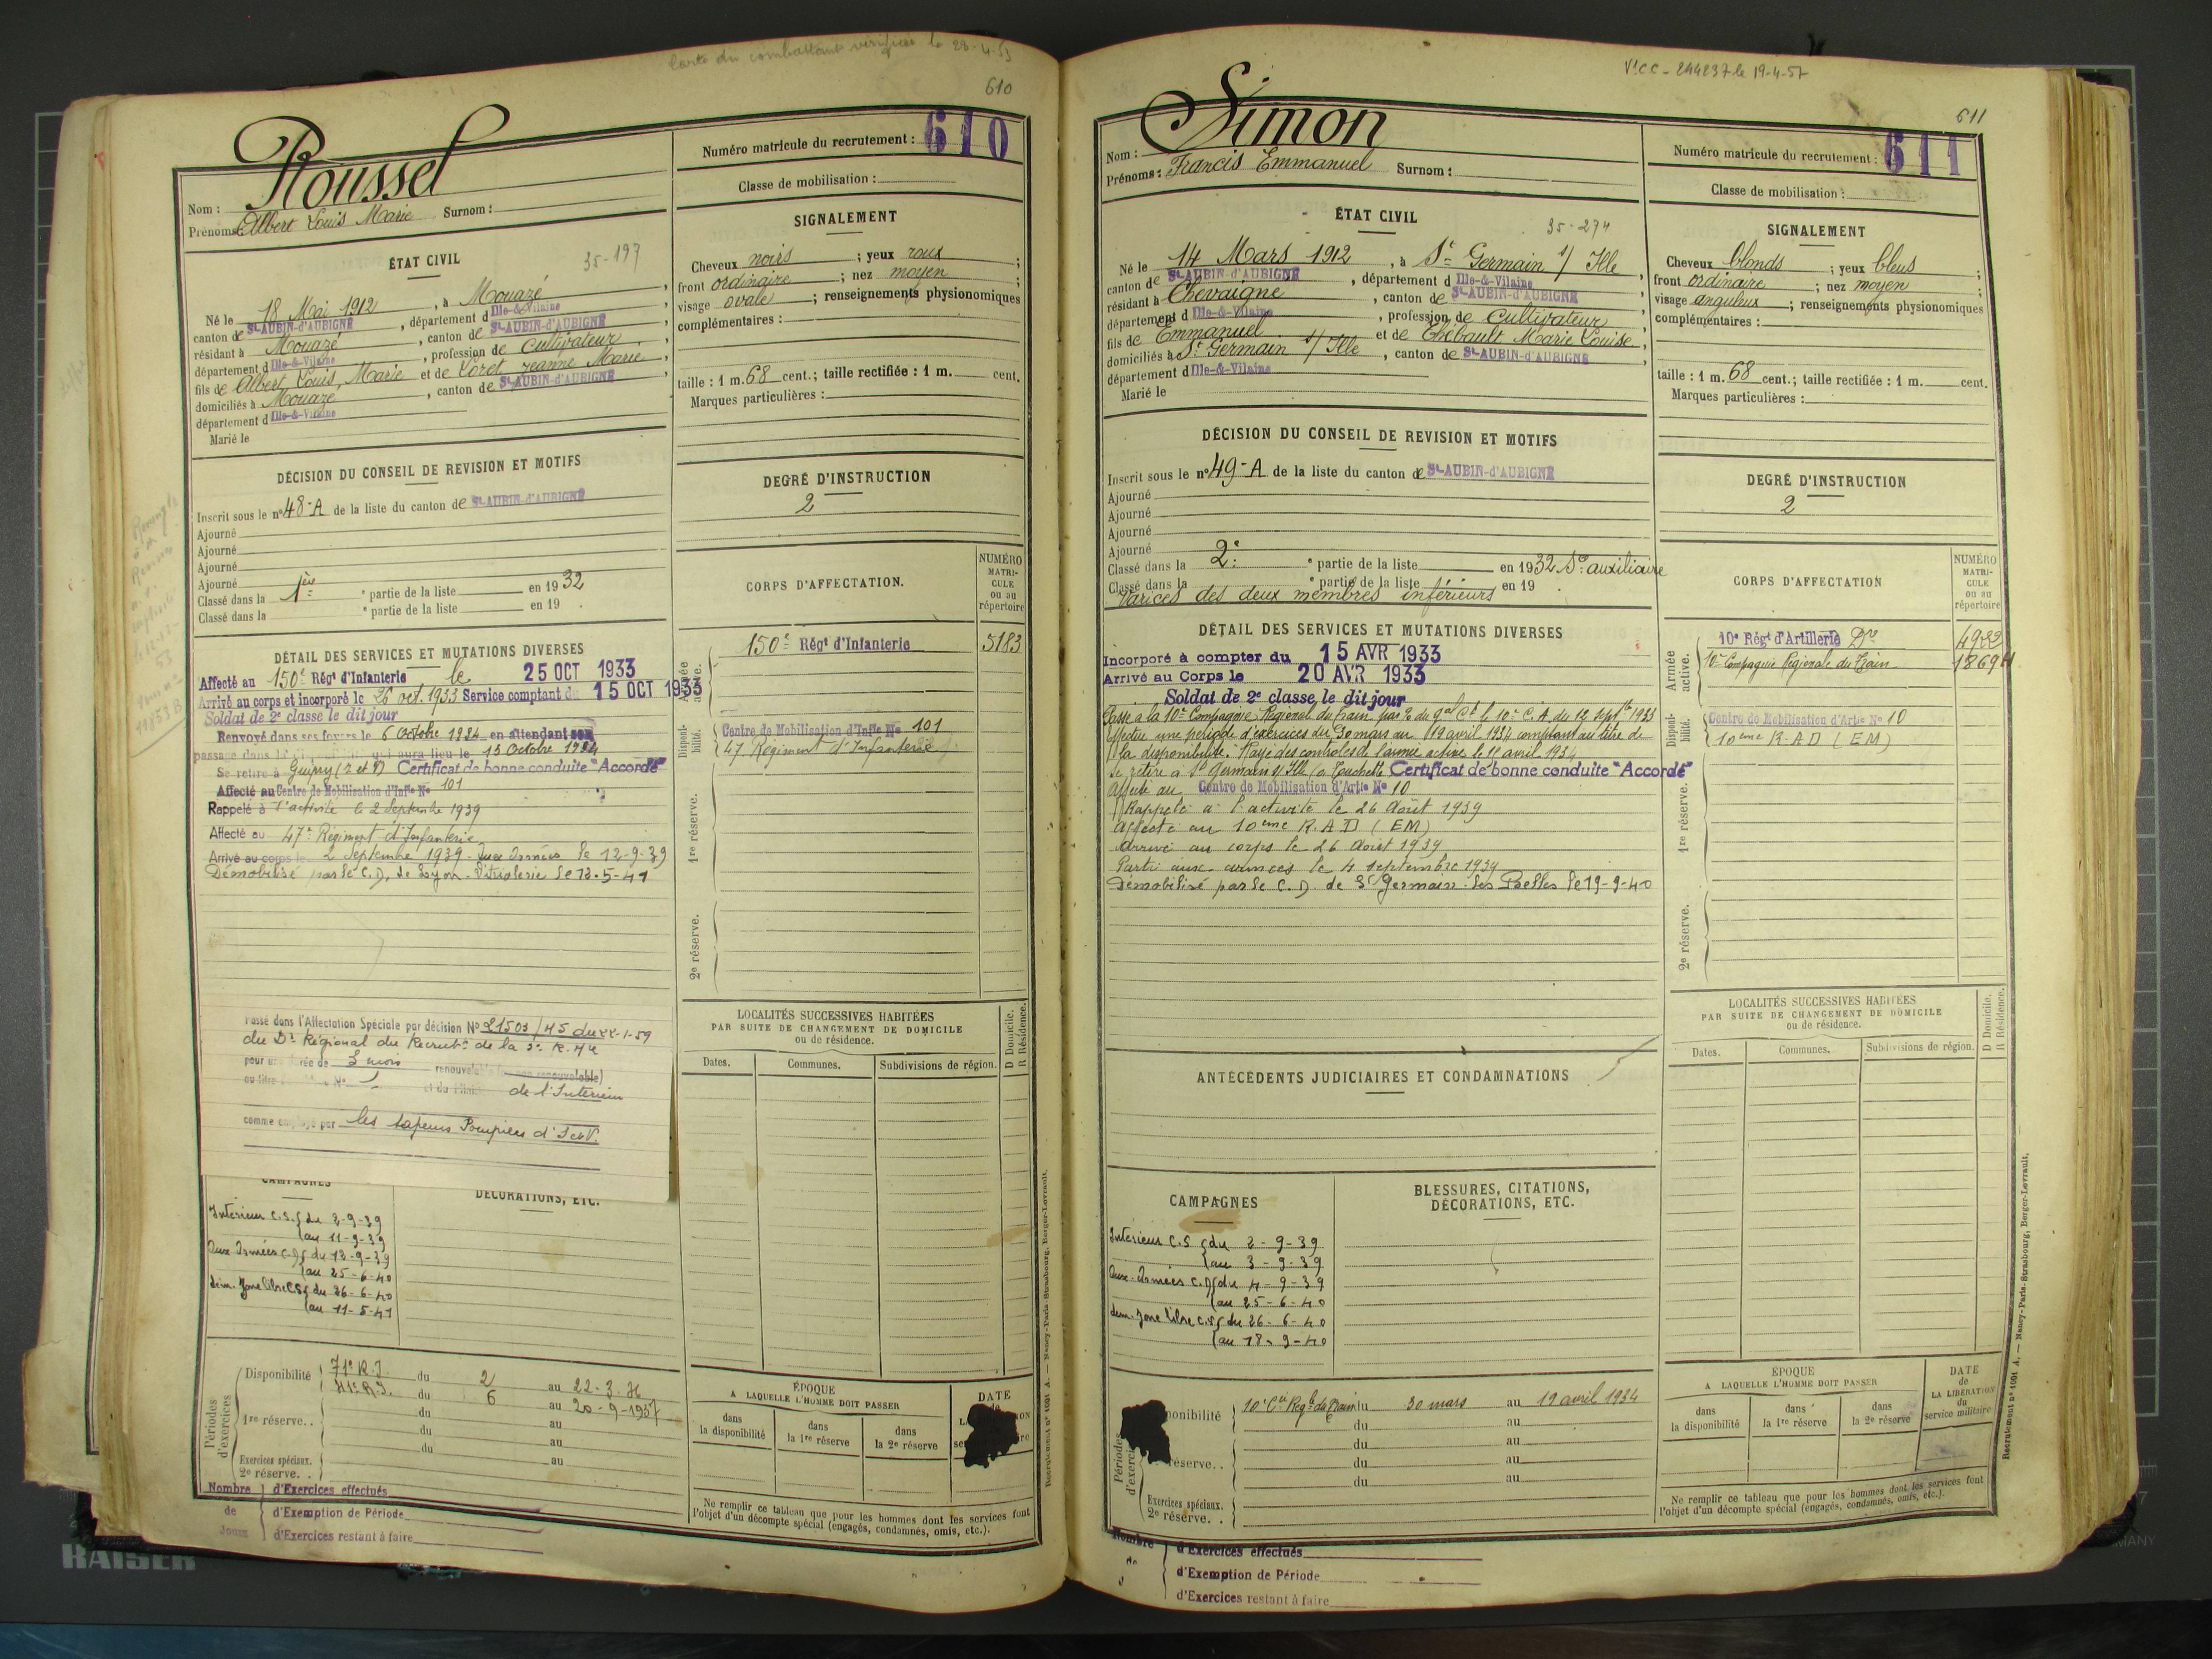 Carte du combattant vérifiée le 28-4-53
610
Roussel
Nom :
Prénoms : Albert Louis Marie Surnom :
Numéro matricule du recrutement : 610
Classe de mobilisation :
ÉTAT CIVIL
35-197
Né le 18 Mai 1912, à Mouazé,
canton de St-AUBIN-d'AUBIGNÉ, département d Ille-&-Vilaine,
résidant à Mouazé, canton de St-AUBIN-d'AUBIGNÉ,
département d Ille-&-Vilaine, profession de cultivateur
fils de Albert, Louis, Marie et de Lorel Jeanne Marie,
domiciliés à Mouazé, canton de St-AUBIN-d'AUBIGNÉ,
département d Ille-&-Vilaine
Marié le
SIGNALEMENT
Cheveux noirs ; yeux roux ;
front ordinaire ; nez moyen ;
visage ovale ; renseignements physionomiques
complémentaires :
taille : 1 m. 68 cent.; taille rectifiée : 1 m. cent.
Marques particulières :
DÉCISION DU CONSEIL DE REVISION ET MOTIFS
Inscrit sous le n° 48-A de la liste du canton de St-AUBIN-d'AUBIGNÉ
Ajourné
Ajourné
Ajourné
Ajourné
Classé dans la 1ère ° partie de la liste en 1932
Classé dans la ° partie de la liste en 19 .
DEGRÉ D'INSTRUCTION
2
DÉTAIL DES SERVICES ET MUTATIONS DIVERSES
Affecté au 150e Régt d'Infanterie le 25 OCT 1933
Arrivé au corps et incorporé le 26 oct. 1933 Service comptant du 15 OCT 1933
Soldat de 2e classe le dit jour
Renvoyé dans ses foyers le 6 Octobre 1934 en attendant son
passage dans la qui aura lieu le 15 Octobre 1934
Se retire à Guipry (I et V) Certificat de bonne conduite "Accordé"
Affecté au Centre de Mobilisation d'Infie No 101
Rappelé à l'activité le 2 Septembre 1939
Affecté au 47e Régiment d'Infanterie
Arrivé au corps le 2 Septembre 1939 - Aux Armées le 12-9-39
Démobilisé par le C.D. de Lyon-Vitriolerie le 12-5-41
Passé dans l'Affectation Spéciale par décision No 21503/45 du 22-1-59
du Dr Régional du Recrutt de la 3e R.Mre
pour une durée de 3 mois renouvelable (non renouvelable)
au titre No et du de l'Intérieur
comme employé par les Sapeurs Pompiers d'I et V.
CORPS D'AFFECTATION.
NUMÉRO MATRICULE ou au répertoire
Armée active.
150e Régt d'Infanterie 5183
Disponibilité.
Centre de Mobilisation d'Infie No 101
47 Régiment d'Infanterie
1re réserve.
2e réserve.
LOCALITÉS SUCCESSIVES HABITÉES
PAR SUITE DE CHANGEMENT DE DOMICILE
ou de résidence.
D Domicile.
R Résidence.
Dates. Communes. Subdivisions de région.
CAMPAGNES
DÉCORATIONS, ETC.
Intérieur C.S. du 2-9-39
au 11-9-39
Aux Armées C.D. du 12-9-39
au 25-6-40
Dém. Zone libre C.S. du 26-6-40
au 11-5-41
Périodes d'exercices
Disponibilité 71e R.I. du 2 au 22-3-36
41e R.I. du 6 au 20-9-1937
1re réserve. . du au
du au
du au
Exercices spéciaux.
2e réserve. .
ÉPOQUE
A LAQUELLE L'HOMME DOIT PASSER
dans la disponibilité
dans la 1re réserve
dans la 2e réserve
DATE
Ne remplir ce tableau que pour les hommes dont les services font
l'objet d'un décompte spécial (engagés, condamnés, omis, etc.).
Nombre de Jours
d'Exercices effectués
d'Exemption de Période
d'Exercices restant à faire
Recrutement n° 1091 A. — Nancy-Paris-Strasbourg, Berger-Levrault.
KAISER
Vt CC - 244237 le 19-4-57
611
Simon
Nom :
Prénoms : Francis Emmanuel Surnom :
Numéro matricule du recrutement : 611
Classe de mobilisation :
ÉTAT CIVIL
35-274
Né le 14 Mars 1912, à St Germain s/ Ille,
canton de St-AUBIN-d'AUBIGNÉ, département d Ille-&-Vilaine
résidant à Chevaigné, canton de St-AUBIN-d'AUBIGNÉ,
département d Ille-&-Vilaine, profession de cultivateur
fils de Emmanuel et de Thébault Marie Louise,
domiciliés à St Germain s/ Ille, canton de St-AUBIN-d'AUBIGNÉ,
département d Ille-&-Vilaine
Marié le
SIGNALEMENT
Cheveux blonds ; yeux bleus ;
front ordinaire ; nez moyen ;
visage anguleux ; renseignements physionomiques
complémentaires :
taille : 1 m. 68 cent.; taille rectifiée : 1 m. cent.
Marques particulières :
DÉCISION DU CONSEIL DE REVISION ET MOTIFS
Inscrit sous le n° 49-A de la liste du canton de St-AUBIN-d'AUBIGNÉ
Ajourné
Ajourné
Ajourné
Ajourné
Classé dans la 2e ° partie de la liste en 1932 Sce auxiliaire
Classé dans la ° partie de la liste en 19 .
Varices des deux membres inférieurs
DEGRÉ D'INSTRUCTION
2
DÉTAIL DES SERVICES ET MUTATIONS DIVERSES
Incorporé à compter du 15 AVR 1933
Arrivé au Corps le 20 AVR 1933
Soldat de 2e classe le dit jour
Passé à la 10e Compagnie Régional du train par du Gal Ct le 10e C.A. du 12 Septbre 1933
Effectue une période d'exercices du 30 mars au 19 avril 1934 comptant au titre de
la disponibilité. Rayé des contrôles de l'armée active le avril 1934
Se retire à St Germain s/ Ille Certificat de bonne conduite "Accordé"
Affecté au Centre de Mobilisation d'Artie No 10
Rappelé à l'activité le 26 Août 1939
Affecté au 10ème R.A.D (EM)
Arrivé au corps le 26 Août 1939
Parti aux armées le 4 septembre 1939
Démobilisé par le C.D. de St Germain-les-Belles le 19-9-40
CORPS D'AFFECTATION
NUMÉRO MATRICULE ou au répertoire
Armée active.
10e Régt d'Artillerie Dre 4922
10e Compagnie Régionale du Train 1869
Disponibilité.
Centre de Mobilisation d'Artie No 10
10ème R-AD (EM)
1re réserve.
2e réserve.
LOCALITÉS SUCCESSIVES HABITÉES
PAR SUITE DE CHANGEMENT DE DOMICILE
ou de résidence.
D Domicile.
R Résidence.
Dates. Communes. Subdivisions de région.
ANTÉCÉDENTS JUDICIAIRES ET CONDAMNATIONS
CAMPAGNES
BLESSURES, CITATIONS,
DÉCORATIONS, ETC.
Intérieur C.S du 2-9-39
au 3-9-39
Aux-Armées C.D du 4-9-39
au 25-6-40
dém. Zone libre C.S du 26-6-40
au 18-9-40
Périodes d'exercices
ponibilité 10e Cie Regle du Train du 30 mars au 19 avril 1934
du au
du au
réserve. . du au
du au
Exercices spéciaux.
2e réserve. .
ÉPOQUE
A LAQUELLE L'HOMME DOIT PASSER
dans la disponibilité
dans la 1re réserve
dans la 2e réserve
DATE
de
LA LIBÉRATION
du
service militaire
Ne remplir ce tableau que pour les hommes dont les services font
l'objet d'un décompte spécial (engagés, condamnés, omis, etc.).
Nombre de
d'Exercices effectués
d'Exemption de Période
d'Exercices restant à faire
Recrutement n° 1091 A. — Nancy-Paris-Strasbourg, Berger-Levrault.